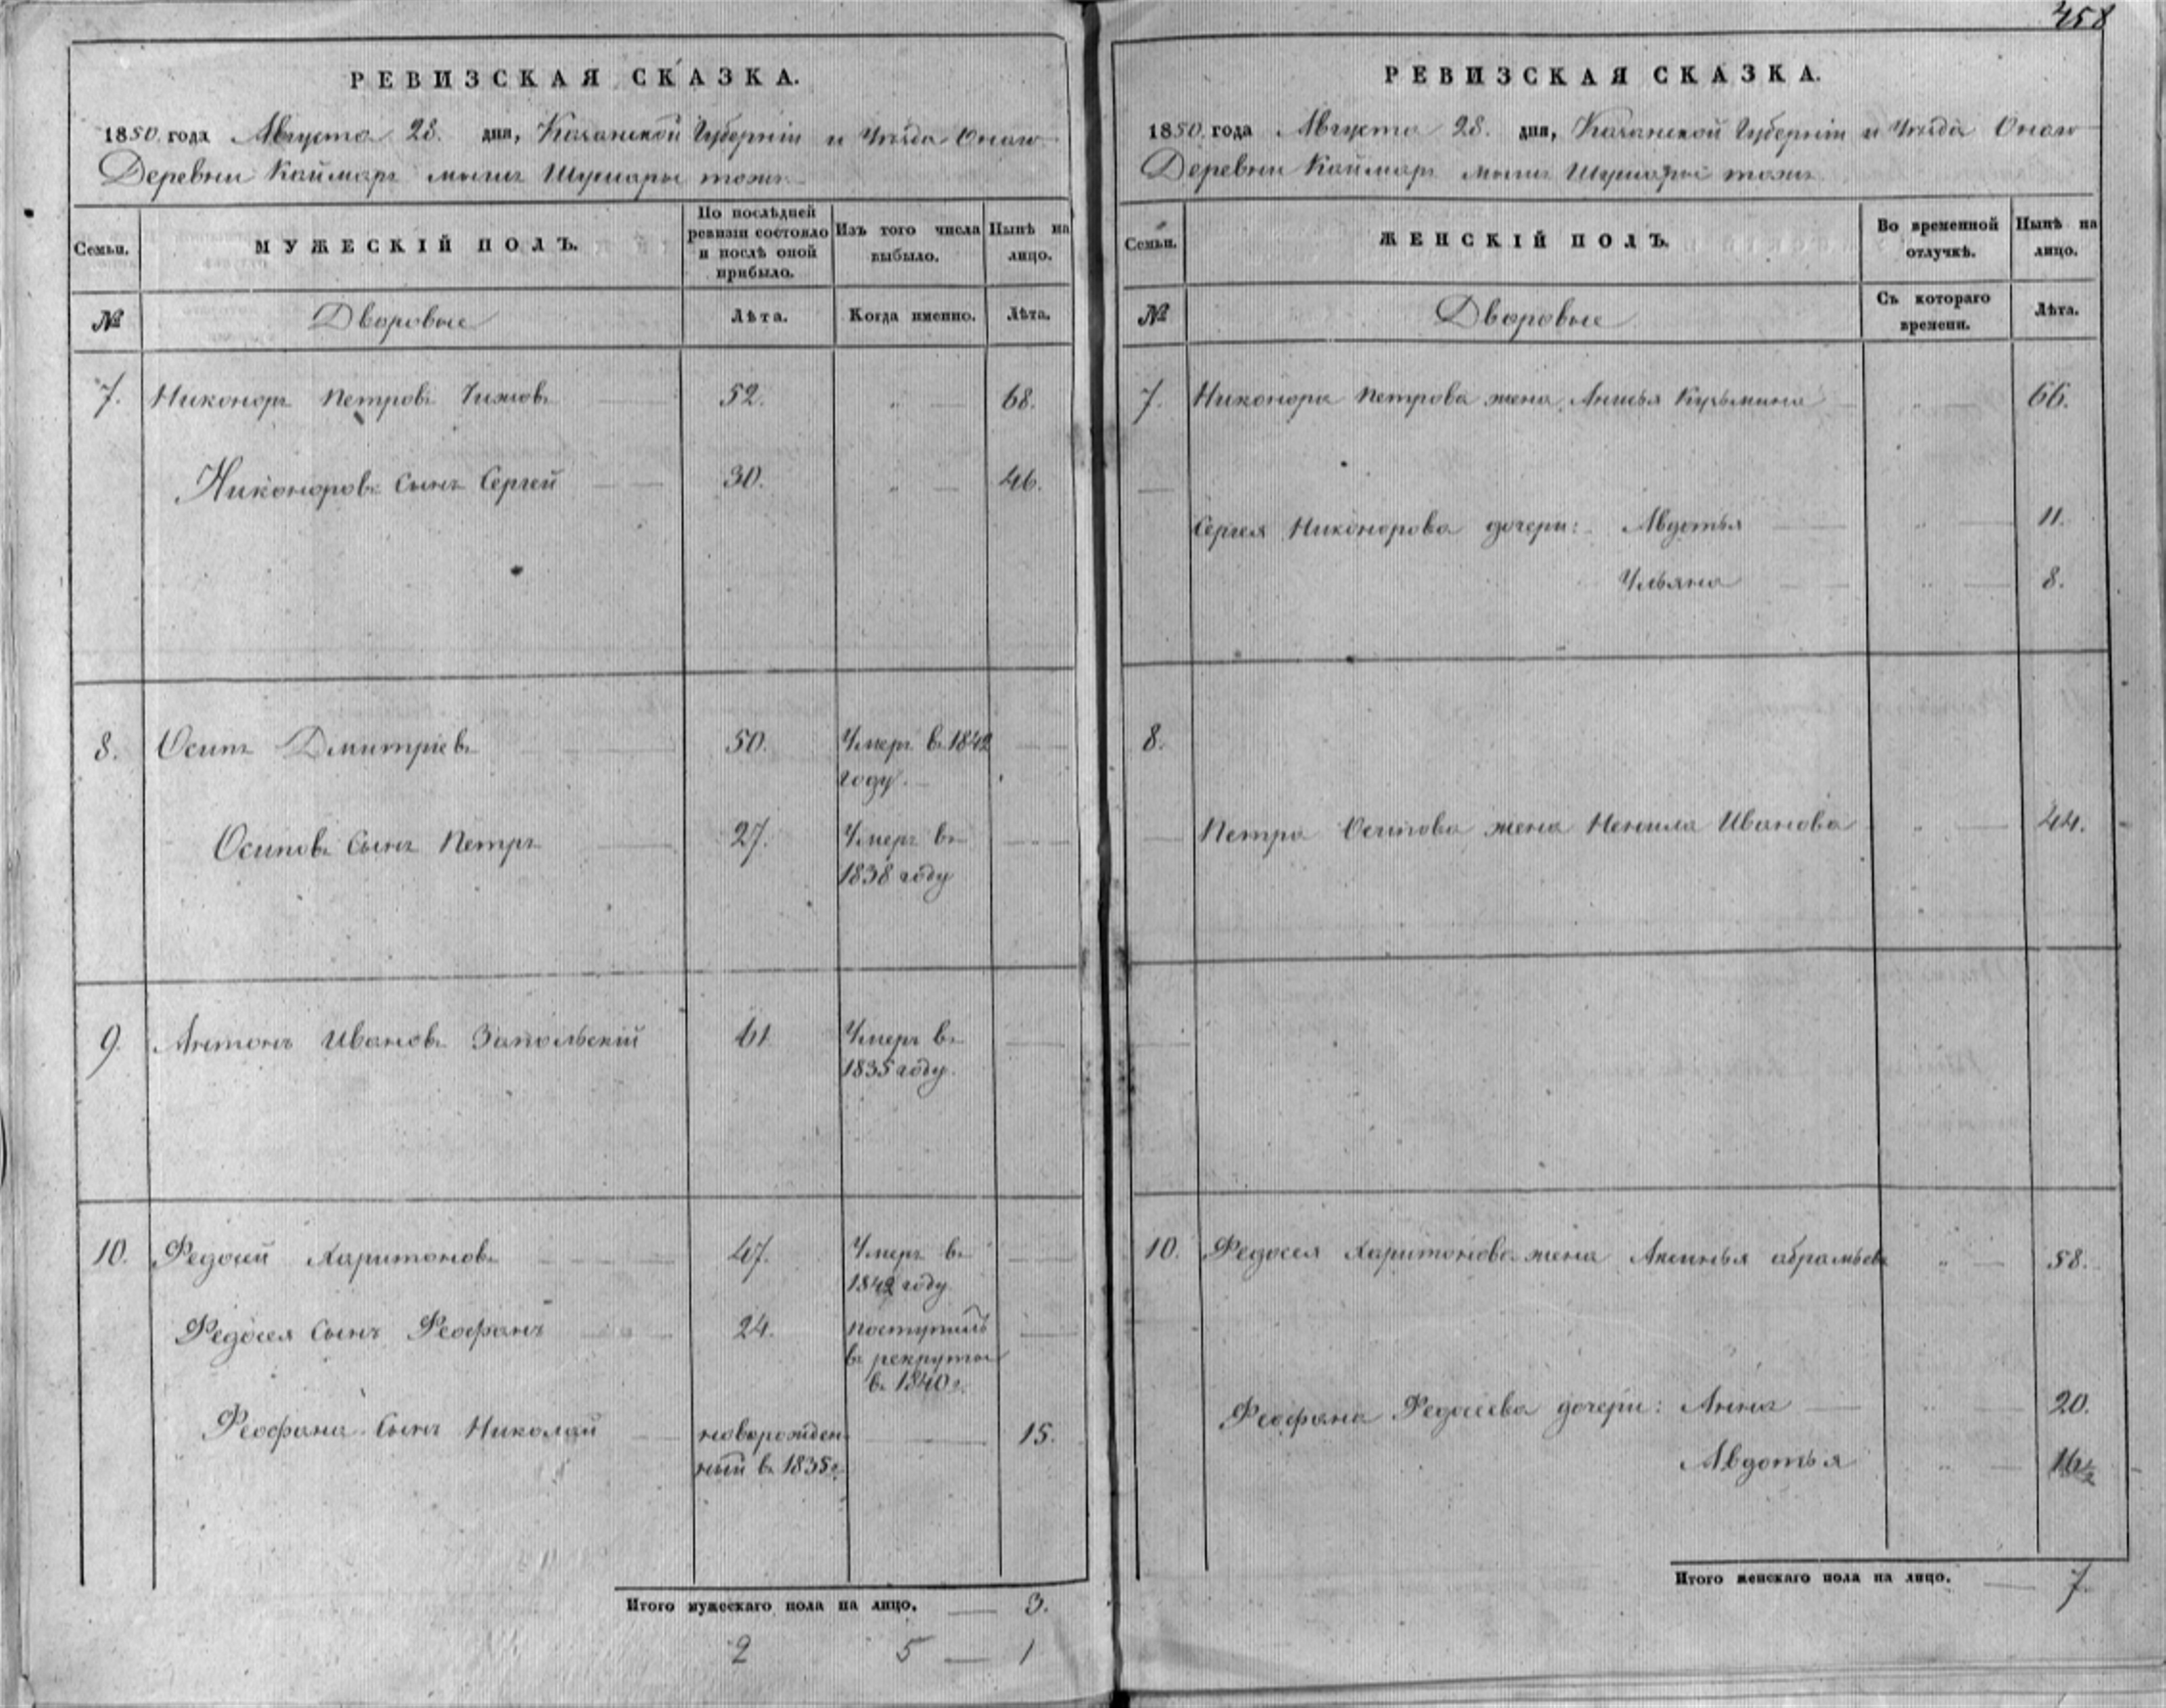 458
РЕВИЗСКАЯ СКАЗКА.
1850 года Августа 28. дня, Казанской Губерніи и Уѣзда Онаго
Деревни Каймаръ
Семьи.
МУЖЕСКІЙ ПОЛЪ.
По послѣдней ревизіи состояло и послѣ оной прибыло.
Изъ того числа выбыло.
Нынѣ на лицо.
№
Дворовые
Лѣта.
Когда именно.
Лѣта.
7. Никоноръ Петровъ 52. „ — 68.
Никоноровъ сынъ Сергей 30. „ — 46.
8. Осипъ Дмитріевъ 50. Умеръ в. 1842
году.
Осиповъ сынъ Петръ 27. Умеръ въ
1838 году
9. Антонъ Ивановъ Запольскій 61 Умеръ въ
1835 году.
10. Федосей Харитоновъ 47. Умеръ въ
1842 году.
Федосея сынъ Феофанъ 24. поступилъ
въ рекруты
в. 1840 г.
Феофана сынъ Николай новорожден 15.
ный в. 1835 г.
Итого мужескаго пола на лицо. — 3.
2 5 — 1
РЕВИЗСКАЯ СКАЗКА.
1850 года Августа 28. дня, Казанской Губерніи и Уѣзда Онаго
Деревни Каймаръ
Семьи.
ЖЕНСКІЙ ПОЛЪ.
Во временной отлучкѣ.
Нынѣ на лицо.
№
Дворовые
Съ котораго времени.
Лѣта.
7. Никонора Петрова жена Анисья Кузьмина „ — 66.
Сергея Никонорова дочери: Авдотья „ 11.
Ульяна „ — 8.
8.
Петра Осипова жена Ненила Иванова „ — 44.
10. Федосея Харитонова жена Аксинья абрамьева „ — 58.
Феофана Федосеева дочери: Анна „ — 20.
Авдотья „ — 16½
Итого женскаго пола на лицо. — 7.